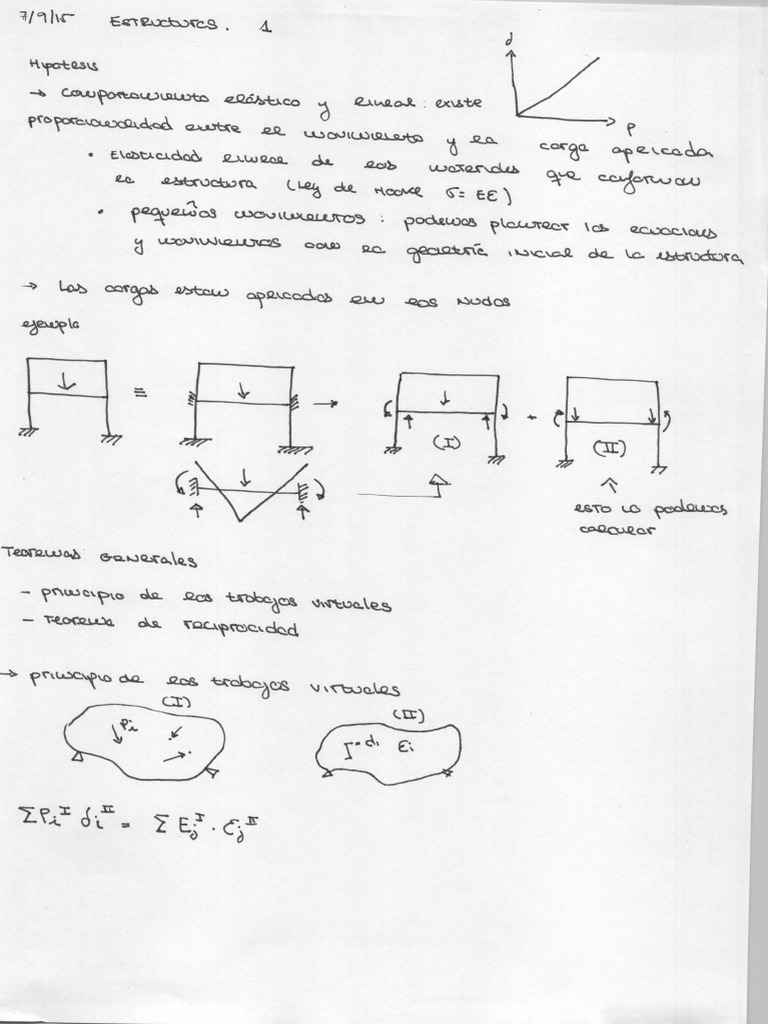 7/9/15 Estructuras. 1
d
Hipotesis
→ Comportamiento elástico y lineal: existe
P
proporcionalidad entre el movimiento y la carga aplicada
• Elasticidad lineal de los materiales que conforman
la estructura (Ley de Hooke σ= Eε)
• pequeños movimientos: podemos plantear las ecuaciones
y movimientos con la geometría inicial de la estructura
→ Las cargas estan aplicadas en los nudos
ejemplo
= →
+
(I)
(II)
esto lo podemos
calcular
Teoremas Generales
- principio de los trabajos virtuales
- Teorema de reciprocidad
→ principio de los trabajos virtuales
(I)
(II)
Pi
di εi
ΣPi^I di^II = Σ Ej^I · εj^II